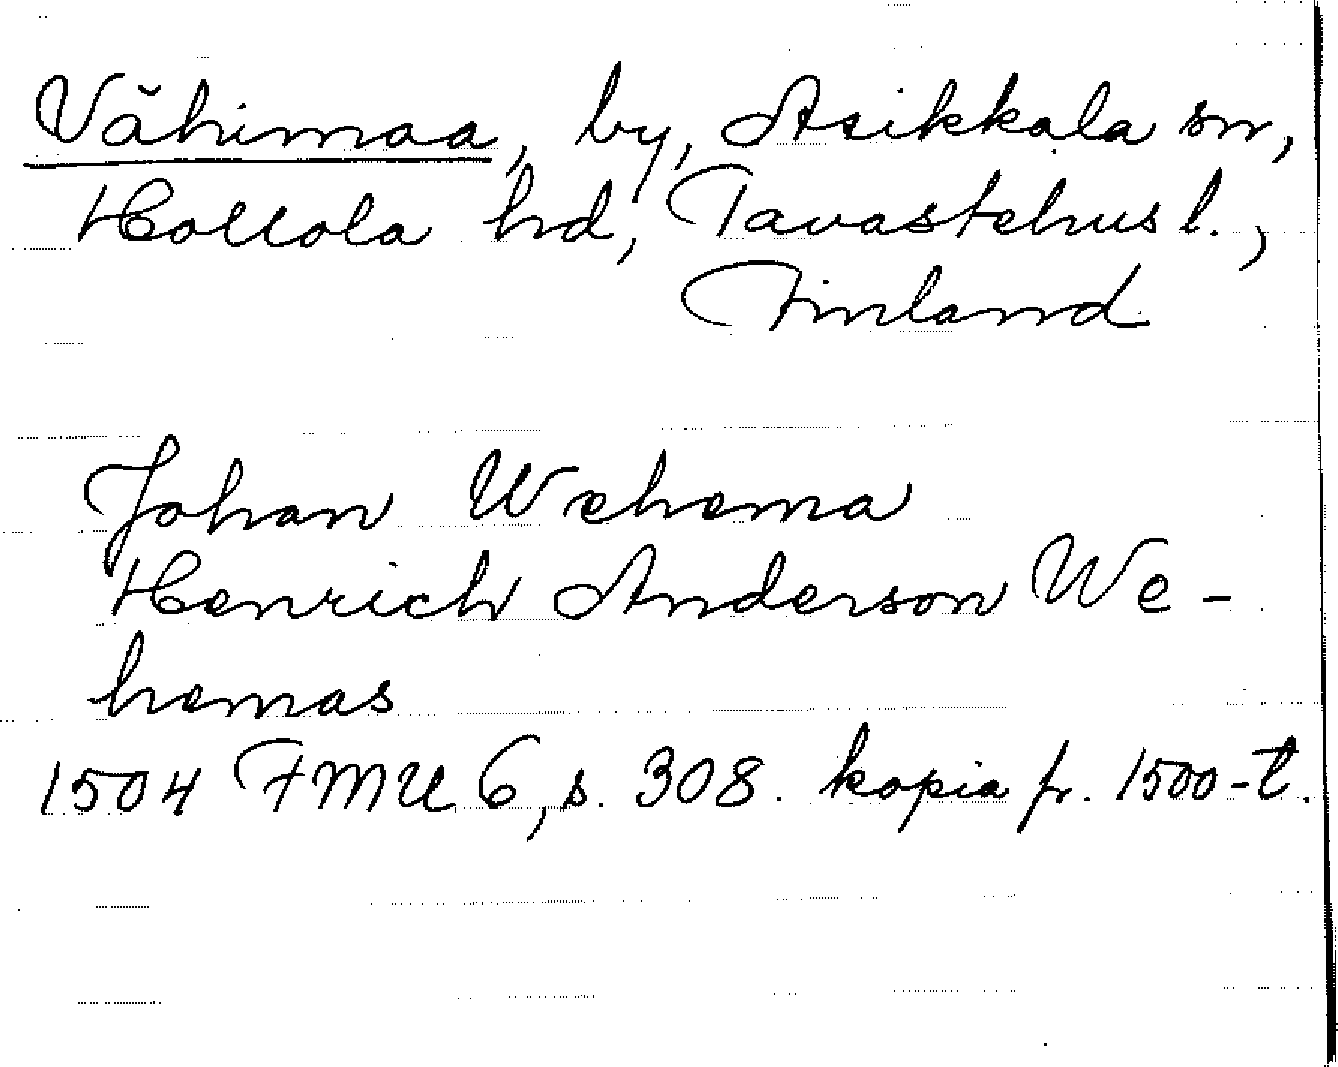 Vähimaa, by, Asikkala sn,
Hollola hd, Tavastehus l.,
Finland
Johan Wehema
Henrich Anderson We-
hemas
1504 FMU 6, s. 308. kopia fr. 1500-t.